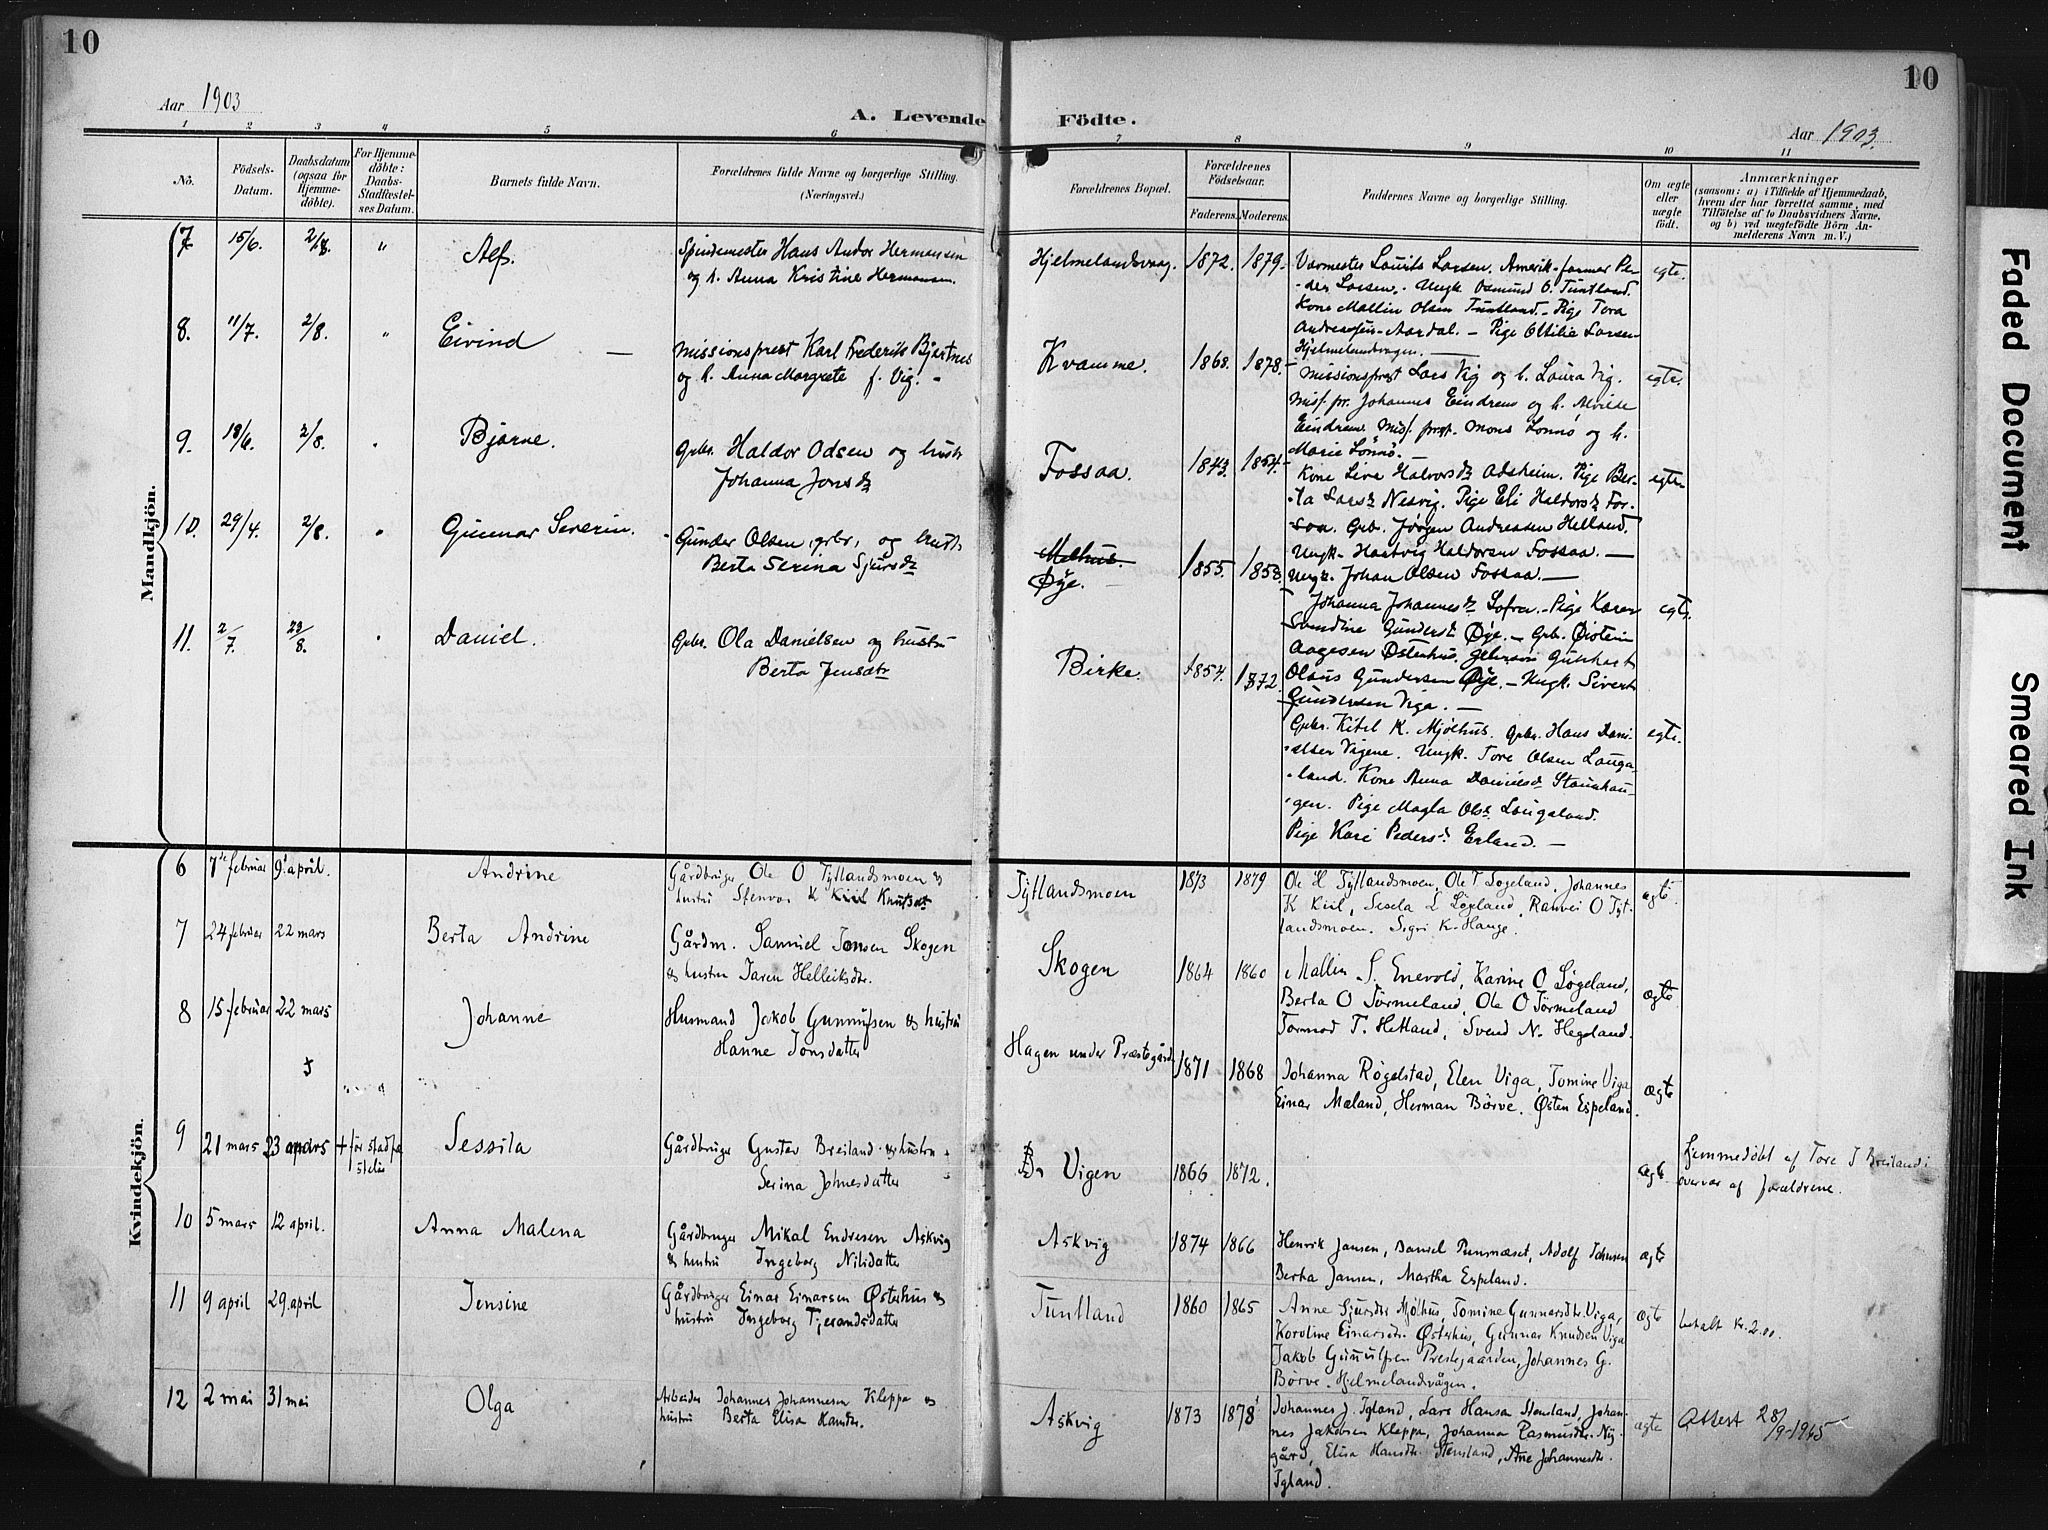 10
10
Aar 1903
A. Levende Födte.
Aar 1903.
1 2 3 4 5 6 7 8 9 10 11
No.
Födsels-
Datum.
Daabsdatum
(ogsaa for
Hjemme-
döbte).
For Hjemme-
döbte:
Daabs-
Stadfæstel-
ses Datum.
Barnets fulde Navn.
Forældrenes fulde Navne og borgerlige Stilling.
(Næringsvei.)
Forældrenes Bopæl.
Forældrenes
Födselsaar.
Faderens. Moderens.
Faddernes Navne og borgerlige Stilling.
Om ægte
eller
uægte
födt.
Anmærkninger
(saasom: a) i Tilfælde af Hjemmedaab,
hvem der har forrettet samme, med
Tilföielse af to Daabsvidners Navne,
og b) ved uægtefödte Börn An-
melderens Navn m. V.)
Mandkjön.
7. 15/6. 2/8. " Alf.
Hans Andor Hermansen
og h. Anna Kristine Hermansen.
Hjelmelandsvaag. 1872. 1879.
Varmester Lauits Larsen. Amerik. farmer Pe-
der Larsen. Ungk. Osmund O. Tuntland.
Kone Mallin Olsen Tuntland. - Pige Tora
Andreasen Aardal. - Pige Ottilie Larsen
Hjelmelandsvagen.
egte.
8. 11/7. 2/8. " Eivind
Missionsprest Karl Frederik Bjertnes
og h. Anna Margrete f. Vig.
Kvamme. 1868. 1878.
Missionsprest Lars Vig og h. Laura Vig.
Misj. pr. Johannes Eindrem og h. Alvilde
Eindrem Misj. prest. Mons Lönnö og h.
Marie Lönnö.
egte.
9. 18/6. 2/8. Bjarne.
Gbr. Haldor Odsen og hustr.
Johanna Jonsd.
Fossaa. 1843. 1854.
Kone Live Halvorsd. Adsheim. Pige Ber-
ta Larsd. Nesvig. Pige Eli Haldorsd. Fos-
saa. Gbr. Jörgen Andreassen Helland.
Ungk. Hartvig Haldorsen Fossaa.
Ungk. Johan Olsen Fossaa.
egte.
10. 29/4. 2/8. Gunnar Severin.
Gunder Olsen, grbr., og hustr.
Berta Serina Sjursd.
Melhus.
Øye. 1855. 1858.
Johanna Johannesd. Pige Karen
Gundersd. Øye. - Grbr. Øistein
Aagesen Østerhus.
Olaus Gundersen Øye. - Ungk. Sivert
Gundersen Viga.
egte.
11. 2/7. 23/8. Daniel.
Gbr. Ola Danielsen og hustru
Berta Jensdtr
Birke. 1854. 1872.
Gbr. Kitel K. Mjølhus. Gbr. Hans Dani-
elsen Vigene. Ungk. Tore Olsen Lauga-
land. Kone Anna Danielsd. Steinhau-
gen. Pige Magla Olsd. Laugaland.
Pige Kari Pedersd. Erland.
egte.
Kvindekjön.
6 7de februar 9 april. Andrine
Gårdbruger Ole O Tytlandsmoen &
hustru Stenvor K Kiil Knutsdt
Tytlandsmoen 1873 1879
Ole H Tytlandsmoen, Ole T Løgeland. Johannes
K Kiil, Sesela L Løgeland, Ranvei O Tyt-
landsmoen. Sigri K. Hauge.
ægte
7 24 februar 22 mars Berta Andrine
Gårdm. Samuel Jonsen Skogen
& hustru Taren Helleiksdtr.
Skogen 1864 1860
Mallin S. Enevold, Karine O Løgeland,
Berta O Tørmeland, Ole O Tørmeland
Tormod T. Hetland, Svend N. Hegeland.
ægte
8 15 februar 22 mars Johanne
Husmand Jakob Gunnulfsen & hustru
Hanne Jonsdatter
Hagen under Præstegård 1871 1868
Johanna Røgelstad, Elen Viga, Tomine Viga
Einar Mæland, Herman Børve. Østen Espeland.
ægte
9 21 mars 23 mars + før stadfæ
stelse
Sessila
Gårdbruger Gustav Breiland & hustru
Serina Johnesdatter
Vigen 1866 1872.
ægt
Hjemmedøbt af Tore T Breiland i
overvær af forældrene.
10 5 mars 12 april. Anna Malena
Gårdbruger Mikal Endresen Askvig
& hustru Ingeborg Nilsdatter
Askvig 1874 1866
Henrik Jansen, Daniel Punsnæset, Adolf Johnsen
Berta Jansen, Martha Espeland.
ægte
11 9 april 29 april Jensine
Gårdbruger Einar Einarsen Østerhus &
hustru Ingeborg Tjerandsdatter
Tuntland 1860 1865
Anne Sjursdtr Mjølhus, Tomine Gunnarsdtr. Viga,
Karoline Einarsdtr. Østerhus, Gunnar Knudsen Viga
Jakob Gunnulfsen Prestegaarden, Johannes G.
Børve. Hjelmelandsvågen.
ægte
betalt kr. 2.00.
12 2 mai 31 mai Olga
Arbeider Johannes Johannesen Kleppa &
hustru Berta Elisa Hansdtr.
Askvig 1873 1878
Johannes J. Igland, Lars Hansen Stensland, Johan-
nes Jakobsen Kleppa, Johanna Rasmusdtr. Ny-
gård, Elisa Hansdtr. Stensland, Ane Johannesdtr.
Igland.
ægte
Attest 28/9-1965
Faded Document
Smeared Ink